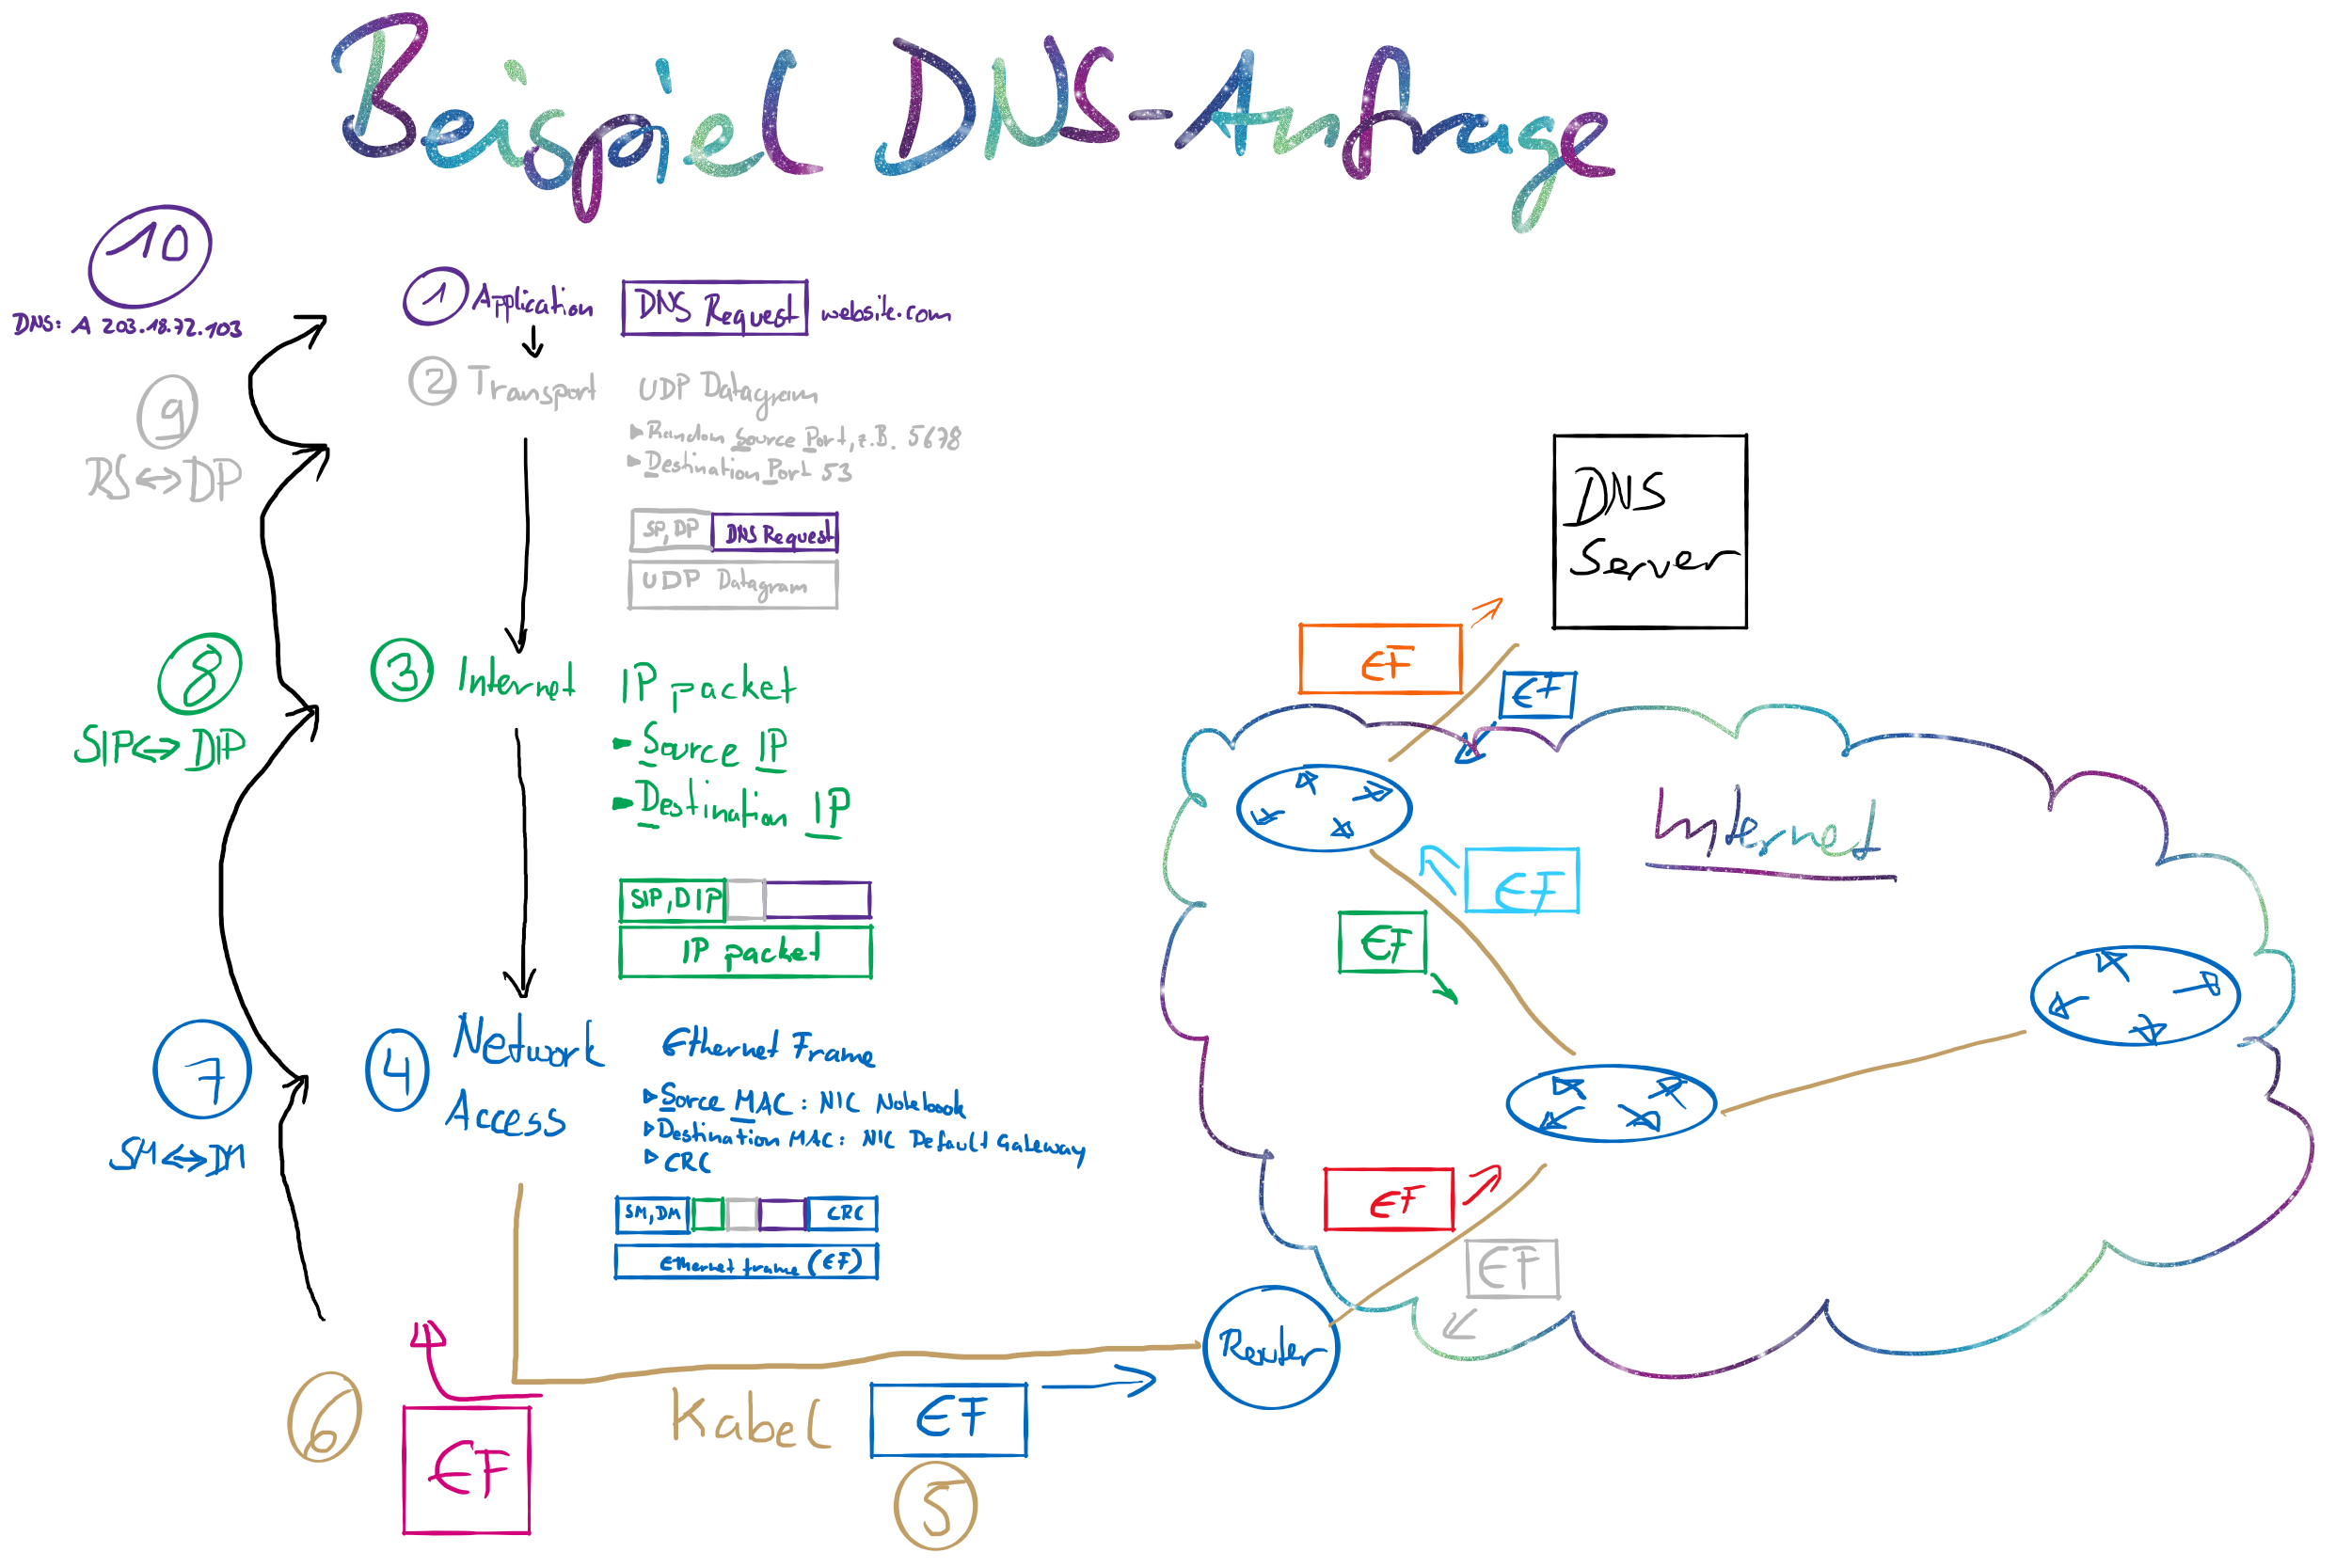 Beispiel DNS-Anfrage
10
DNS: A 203.18.72.103
9
RS ↔ DP
8
SIP ↔ DIP
7
SM ↔ DM
6
1 Application
DNS Request website.com
2 Transport
UDP Datagram
Random Source Port, z.B. 5678
Destination Port 53
SP, DP DNS Request
UDP Datagram
3 Internet
IP packet
Source IP
Destination IP
SIP, DIP
IP packet
4 Network
Access
Ethernet Frame
Sorce MAC: NIC Notebook
Destination MAC: NIC Default Gateway
CRC
SM, DM CRC
Ethernet frame (EF)
EF
Kabel
EF
5
Router
DNS
Server
EF
EF
Internet
EF
EF
EF
EF